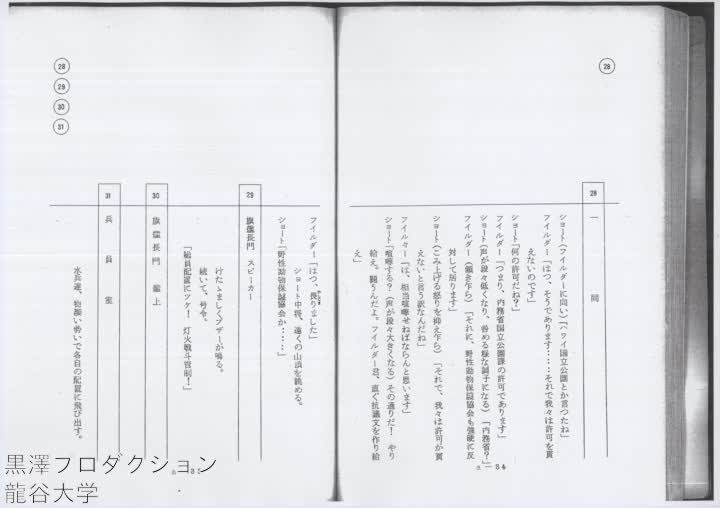 28
28 一同
ショート(フイルダーに向い)「ハワイ国立公園とか言つたね」
フイルダー「はつ、そうであります‥‥それで我々は許可を貰
えないのです」
ショート「何の許可だね?」
フイルダー「つまり、内務省国立公園課の許可であります」
ショート(声が段々低くなり、咎める様な調子になる)「内務省?」
フイルダー(頷き乍ら)「それに、野性動物保護協会も強硬に反
対して居ります」
ショート(こみ上げる怒りを抑え乍ら)「それで、我々は許可が貰
えないと言う訳なんだね」
フイルダー「は、相当喧嘩せねばならんと思います」
ショート「喧嘩する?(声が段々大きくなる)その通りだ!やり
給え。闘うんだよ。フイルダー君、直ぐ抗議文を作り給
え」
34
フイルダー「はつ、畏りました」
ショート中将、遠くの山頂を眺める。
ショート「野性動物保護協会か‥‥」
29 旗艦長門 スピーカー
けたゝましくブザーが鳴る。
続いて、号令。
「総員配置にツケ!灯火戦斗管制!」
30 旗艦長門 艦上
31 兵員室
水兵達、物凄い勢いで各自の配置に飛び出す。
28
29
30
31
黒澤プロダクション
龍谷大学